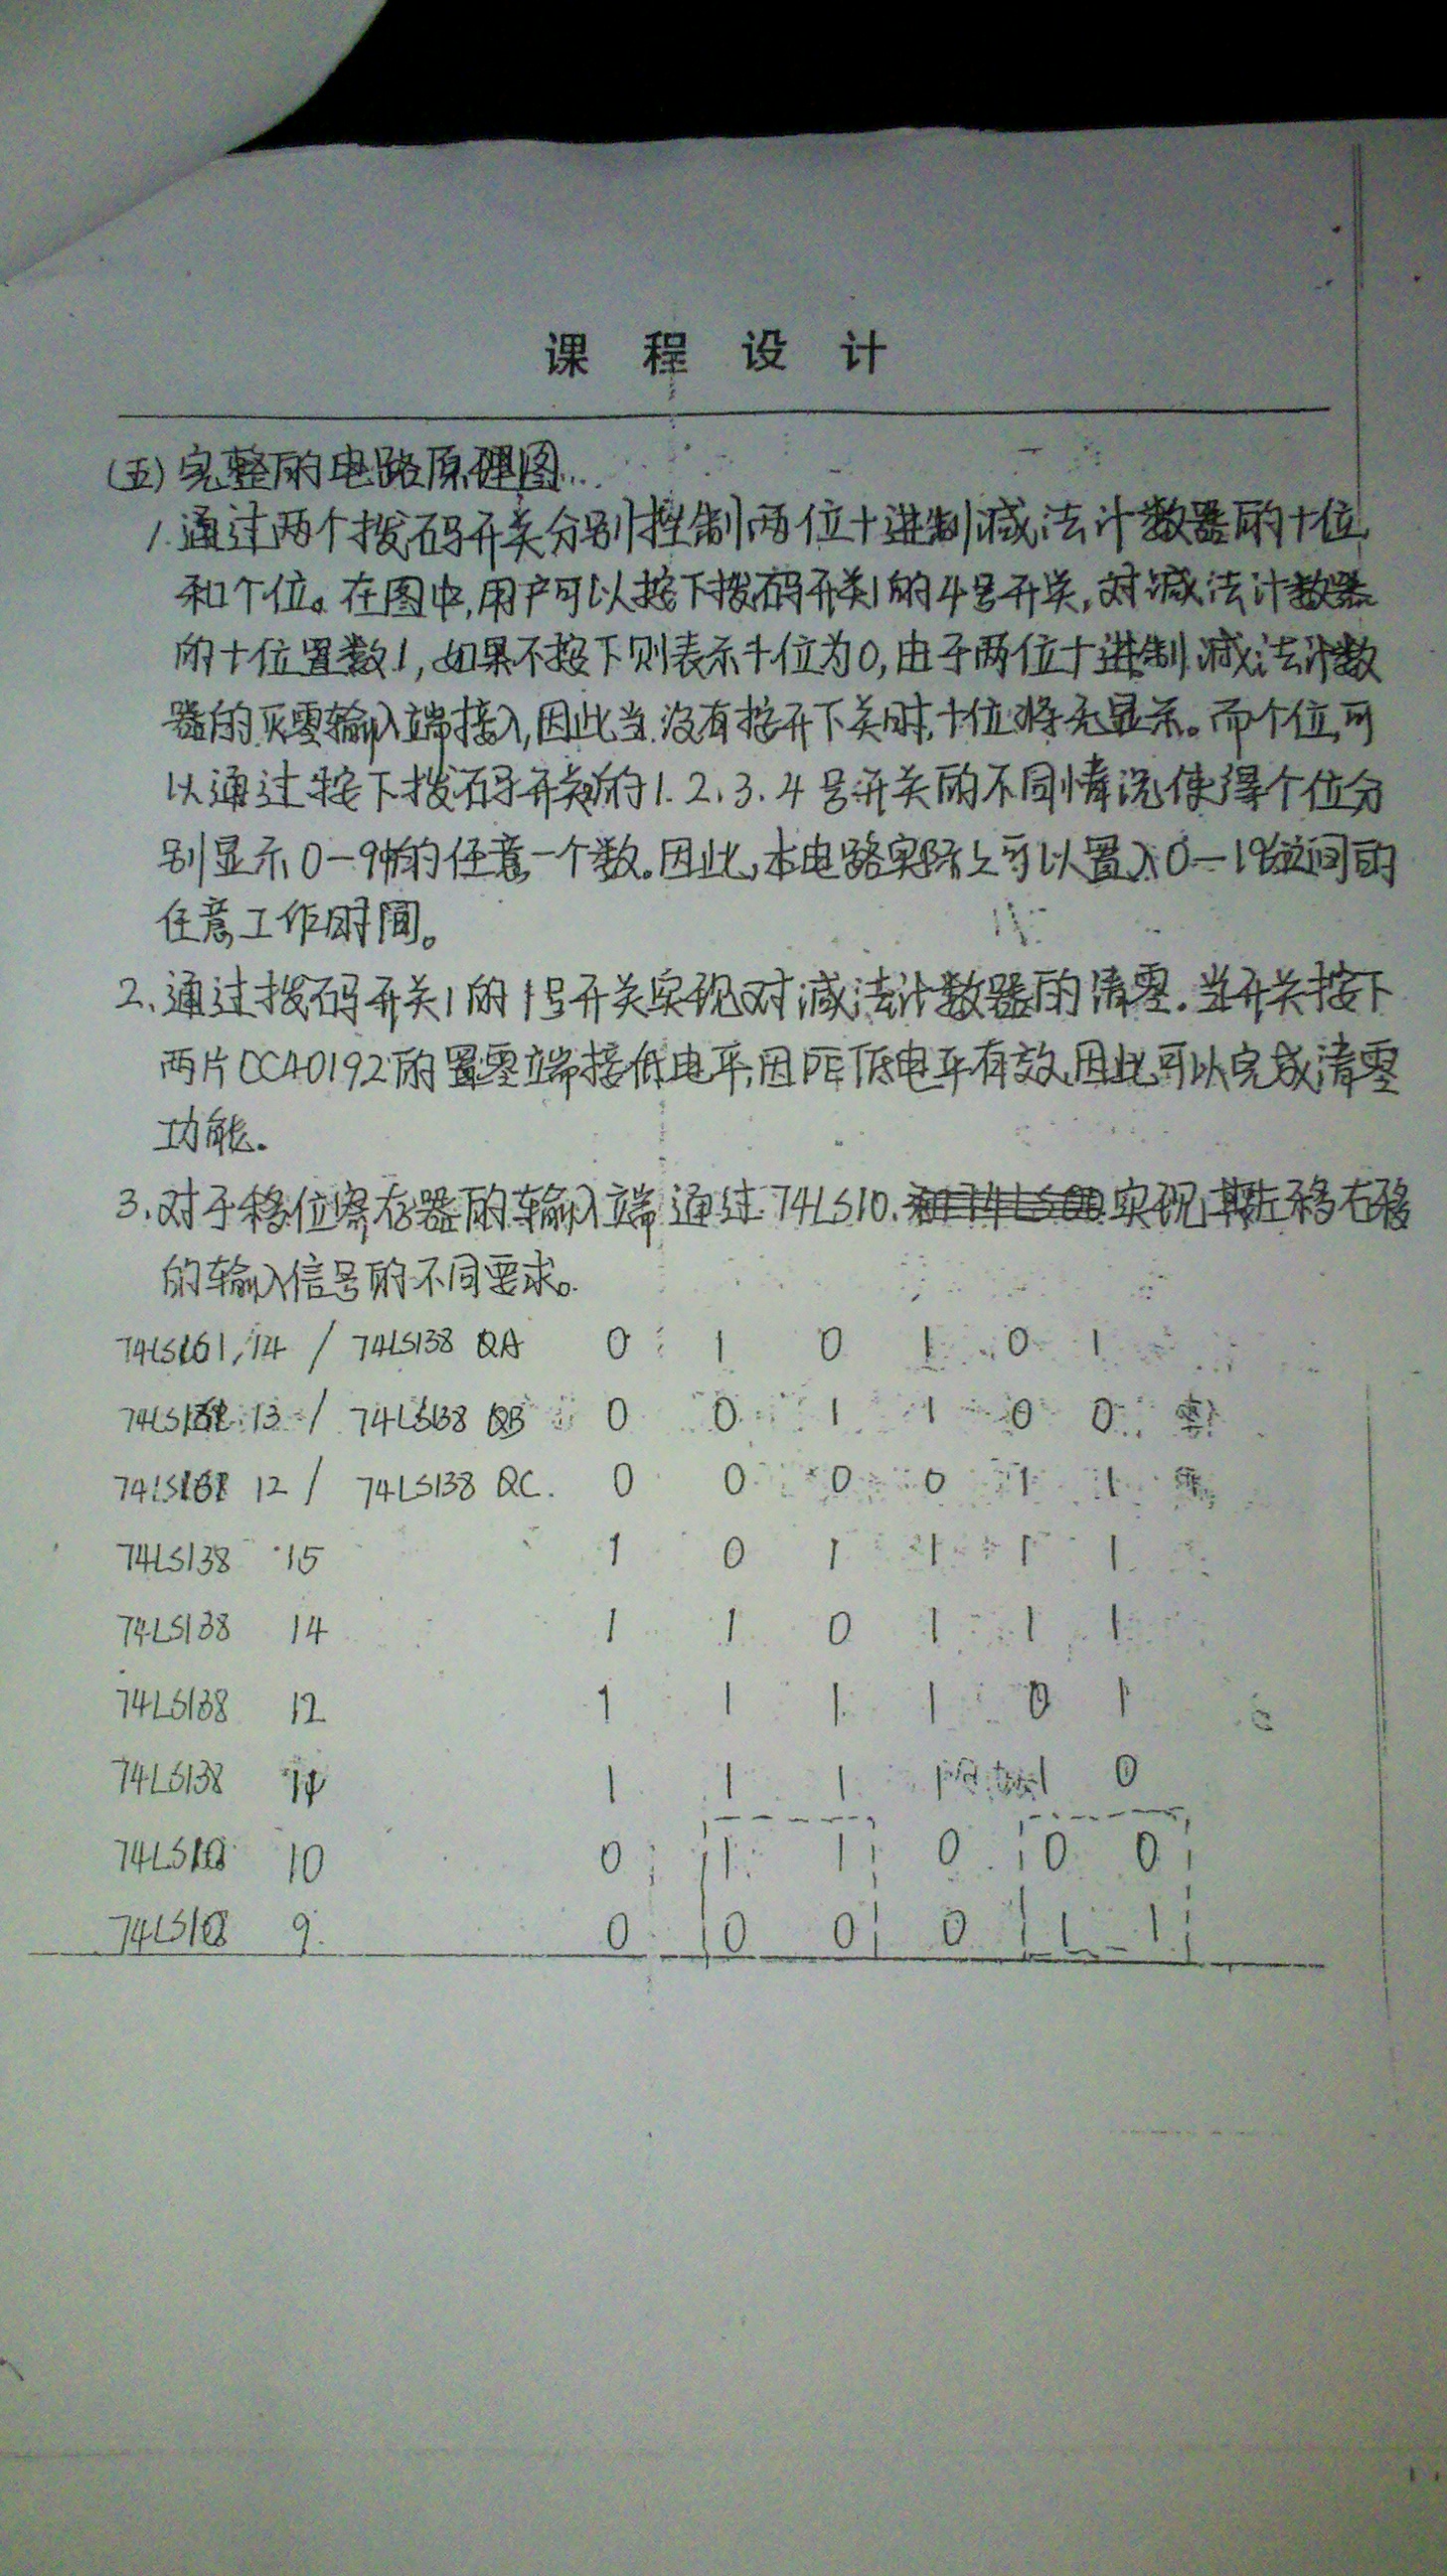 课程设计
(五)完整的电路原理图
1.通过两个拨码开关分别控制两位十进制减法计数器的十位
和个位。在图中,用户可以按下拨码开关1的4号开关,对减法计数器
的十位置数1,如果不按下则表示十位为0,由于两位十进制减法计数
器的灭零输入端接入,因此当没有按开下关时,十位将无显示。而个位可
以通过按下拨码开关的1.2.3.4号开关的不同情况使得个位分
别显示0-9中的任意一个数。因此,本电路实际上可以置入0-19之间的
任意工作时间。
2、通过拨码开关1的1号开关实现对减法计数器的清零.当开关按下
两片CC40192的置零端接低电平,因PE低电平有效,因此可以完成清零
功能.
3.对于移位寄存器的输入端通过74LS10.实现其左移右移
的输入信号的不同要求。
74LS161,14 / 74LS138 QA 0 1 0 1 0 1
74LS161 13 / 74LS138 QB 0 0 1 1 0 0
74LS161 12 / 74LS138 QC. 0 0 0 0 1 1
74LS138 15 1 0 1 1 1 1
74LS138 14 1 1 0 1 1 1
74LS138 12 1 1 1 1 0 1
74LS138 11 1 1 1 1 1 0
74LS10 10 0 1 1 0 0 0
74LS10 9. 0 0 0 0 1 1